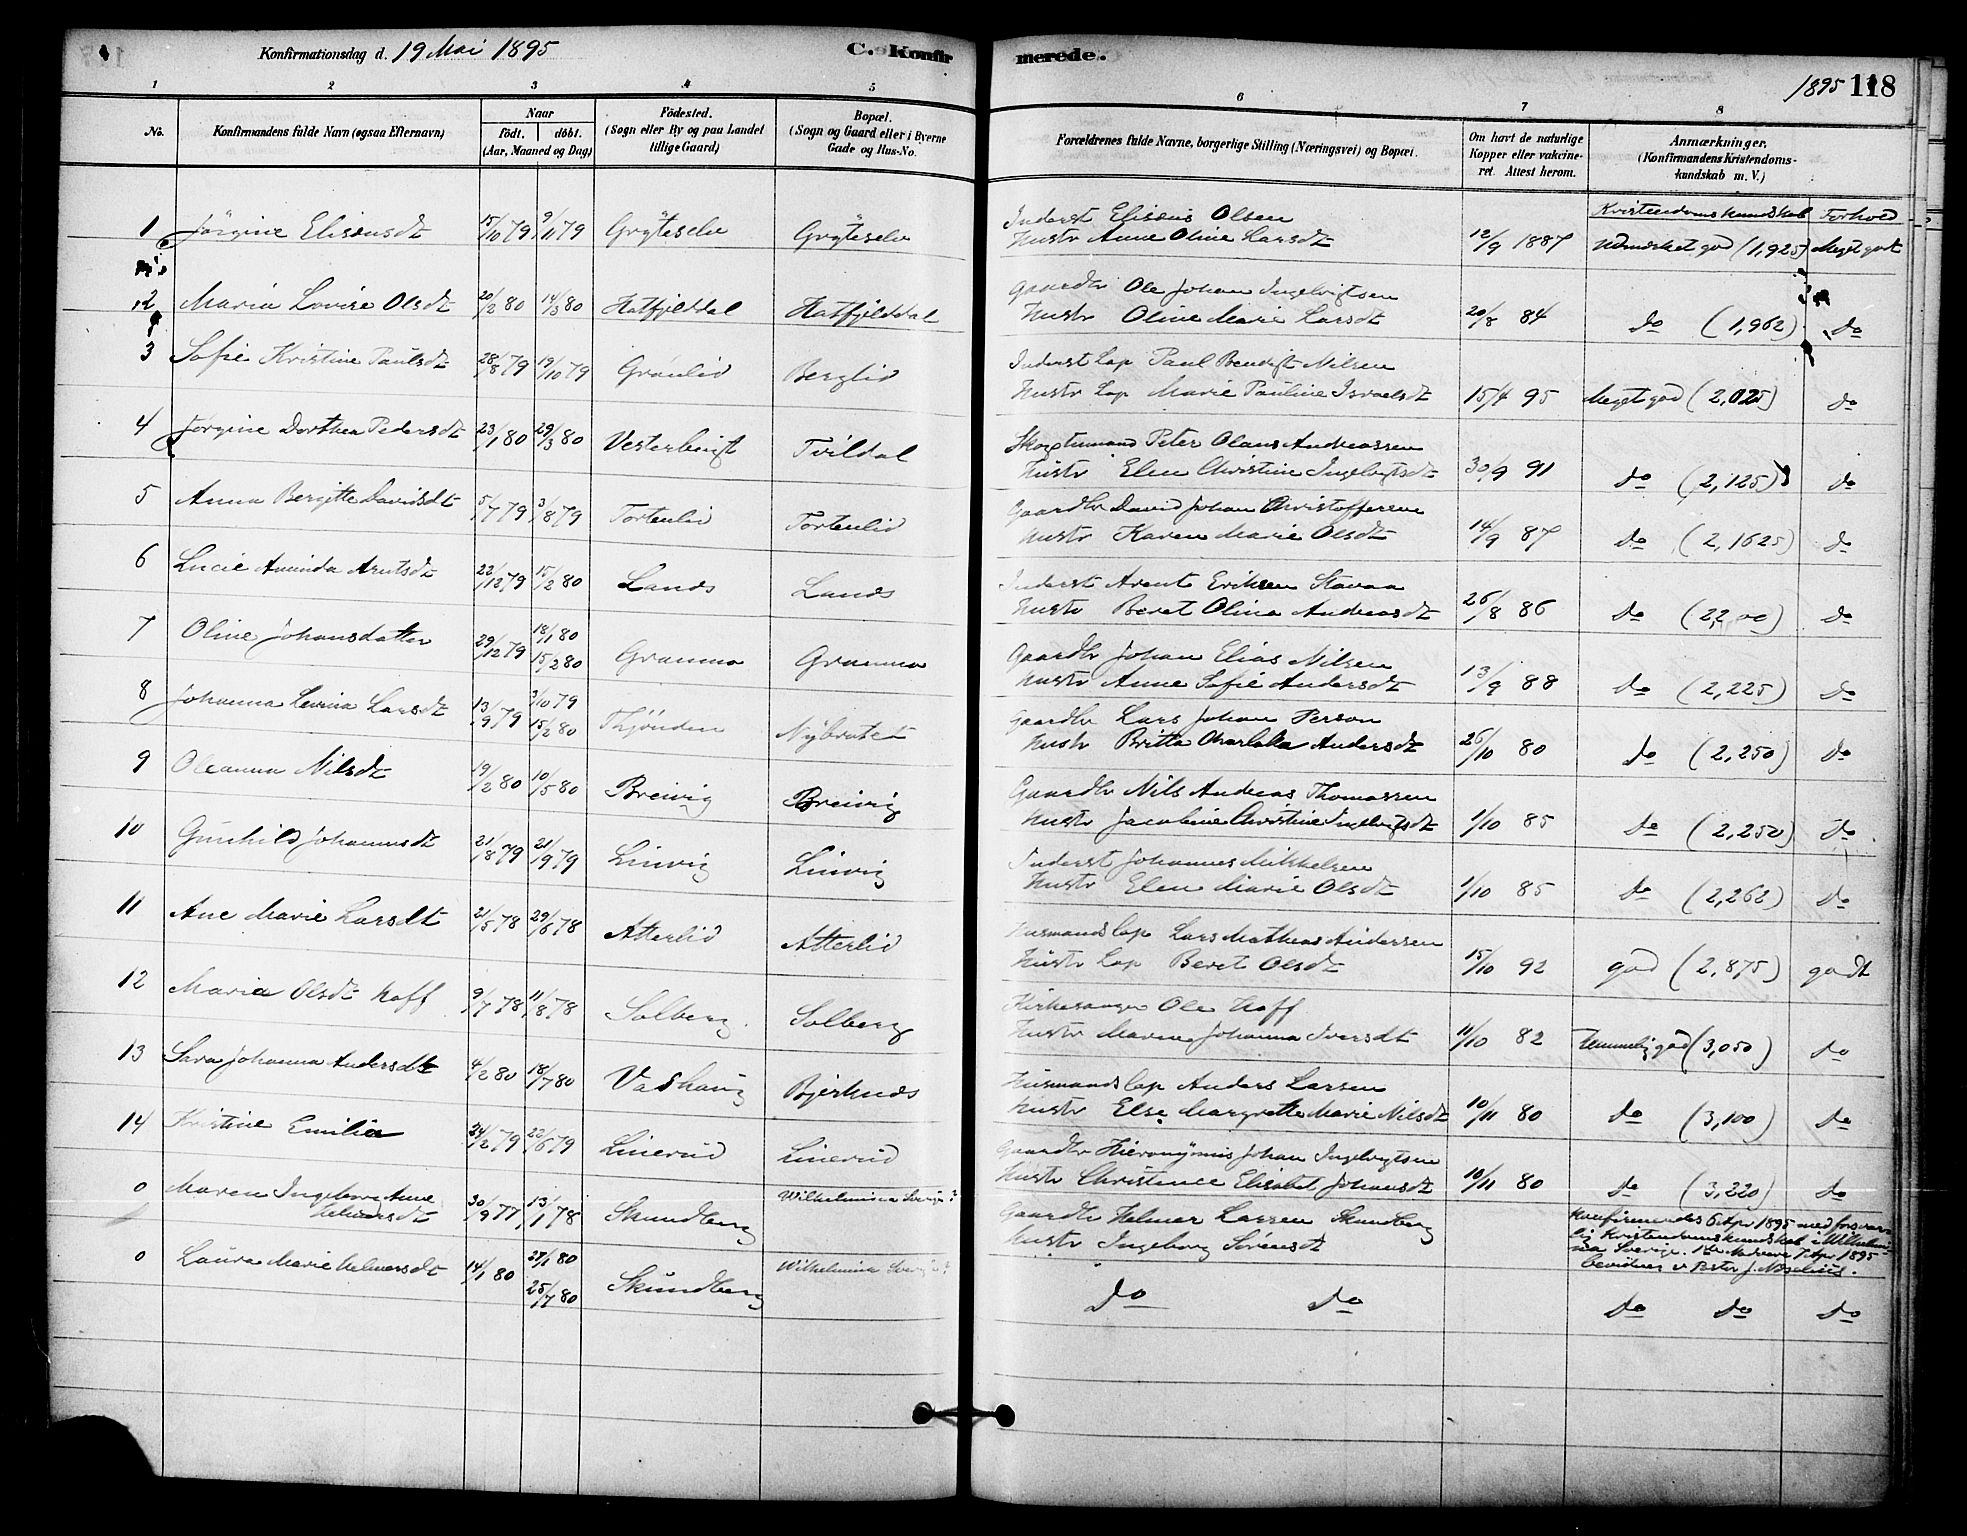 Konfirmationsdag d. 19 Mai 1895
C. Konfirmerede.
1895 118
1 2 3 4 5 6 7 8
No.
Konfirmandens fulde Navn (ogsaa Efternavn)
Naar
födt. döbt.
(Aar, Maaned og Dag)
Födested.
(Sogn eller By og paa Landet
tillige Gaard)
Bopæl.
(Sogn og Gaard eller i Byerne
Gade og Hus-No.
Forældrenes fulde Navne, borgerlige Stilling (Næringsvei) og Bopæl.
Om havt de naturlige
Kopper eller vakcine-
ret. Attest herom.
Anmærkninger.
(Konfirmandens Kristendoms-
kundskab m. V.)
Kristendomskundskab Forhold
1 Jörgine Elisæusdt 15/10 79 9/11 79 Gryteselv Gryteselv Inderst Elisæus Olsen
Hustr Anne Oline Larsdt 12/9 1887 Udmærket god (1,925) Meget godt
2 Maria Lovise Olsdt 20/2 80 14/3 80 Hatfjelddal Hatfjelddal Gaardbr Ole Johan Ingebrigtsen
Hustr Oline Marie Larsdt 20/8 84 do (1,962) do
3 Sofie Kristine Paulsdt 28/8 79 19/10 79 Grönlid Berglid Inderst Lap Paul Bendigt Nilsen
Hustr Lap Marie Pauline Israelsdt 15/4 95 Meget god (2,025) do
4 Jörgine Dorthea Pedersdt 23/1 80 29/3 80 Vesterbugt Tvildal Peter Olaus Andreassen
Hustr Elen Christine Ingebrigtsdt 30/9 91 do (2,125) do
5 Anna Bergitte Davidsdt 5/7 79 3/8 79 Tortenlid Tortenlid Gaardbr David Johan Christoffersen
Hustr Karen Marie Olsdt 14/9 87 do (2,1625) do
6 Lucie Aminda Arntsdt 22/12 79 15/2 80 Inderst Arent Eriksen Stavaa
Hustr Beret Olina Andreasdt 26/8 86 do (2,200) do
7 Oline Johansdatter 29/12 79 18/1 80
15/2 80 Grannæs Grannæs Gaardbr Johan Elias Nilsen
Hustr Anne Sofie Andersdt 13/9 88 do (2,225) do
8 Johanna Larsdt 13/9 79 3/10 79
15/2 80 Nybrotet Gaardbr Lars Johan Person
Hustr Britta Andersdt 26/10 80 do (2,250) do
9 Oleanna Nilsdt 19/2 80 10/5 80 Breivig Breivig Gaardbr Nils Andreas Thomassen
Hustr Jacobine Christine Ingebrigtsdt 1/10 85 do (2,250) do
10 Gunhild Johannesdt 21/8 79 21/9 79 Linvig Linvig Inderst Johannes Mikkelsen
Hustr Elen Marie Olsdt 1/10 85 do (2,262) do
11 Ane Marie Larsdt 21/5 78 29/6 78 Atterlid Atterlid Husmands Lap Lars Mathias Andersen
Hustr Lap Beret Olsdt 15/10 92 god (2,875) godt
12 Maria Olsdt Hoff 9/7 78 11/8 78 Solberg Solberg Kirkesanger Ole Hoff
Hustr Maren Johanna Iversdt 11/10 82 Temmelig god (3,050) do
13 Sara Johanna Andersdt 4/2 80 18/7 80 Bjerknes Husmands Lap Anders Larsen
Hustr Else Margrette Marie Nilsdt 10/11 80 do (3,100) do
14 Kristine Emilie 24/2 79 22/6 79 Linerud Linerud Gaardbr Hieronymus Johan Ingebrigtsen
Hustr Christence Elisabet Johansdt 10/11 80 do (3,220) do
0 Maren Ingeborg Anne
Helmersdt 30/9 77 13/1 78 Skundberg Wilhelmina Sverige? Gaardbr Helmer Larsen Skundberg
Hustr Ingeborg Sörensdt Konfirmeredes 6 Apr 1895 med forsvar-
lig Kristendomskundskab i Wilhelmi-
na Sverige. 7 Apr 1895
0 Laura Marie Helmersdt 14/1 80 27/1 80
25/7 80 Skundberg Wilhelmina Sverige? do do do do do